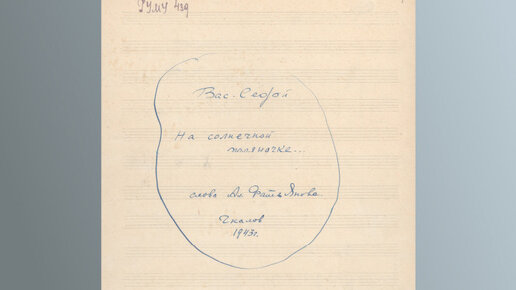 РУМУ 439
Вас. Седой
На солнечной
поляночке...
слова Ал. Фатьянова.
Чкалов
1943г.